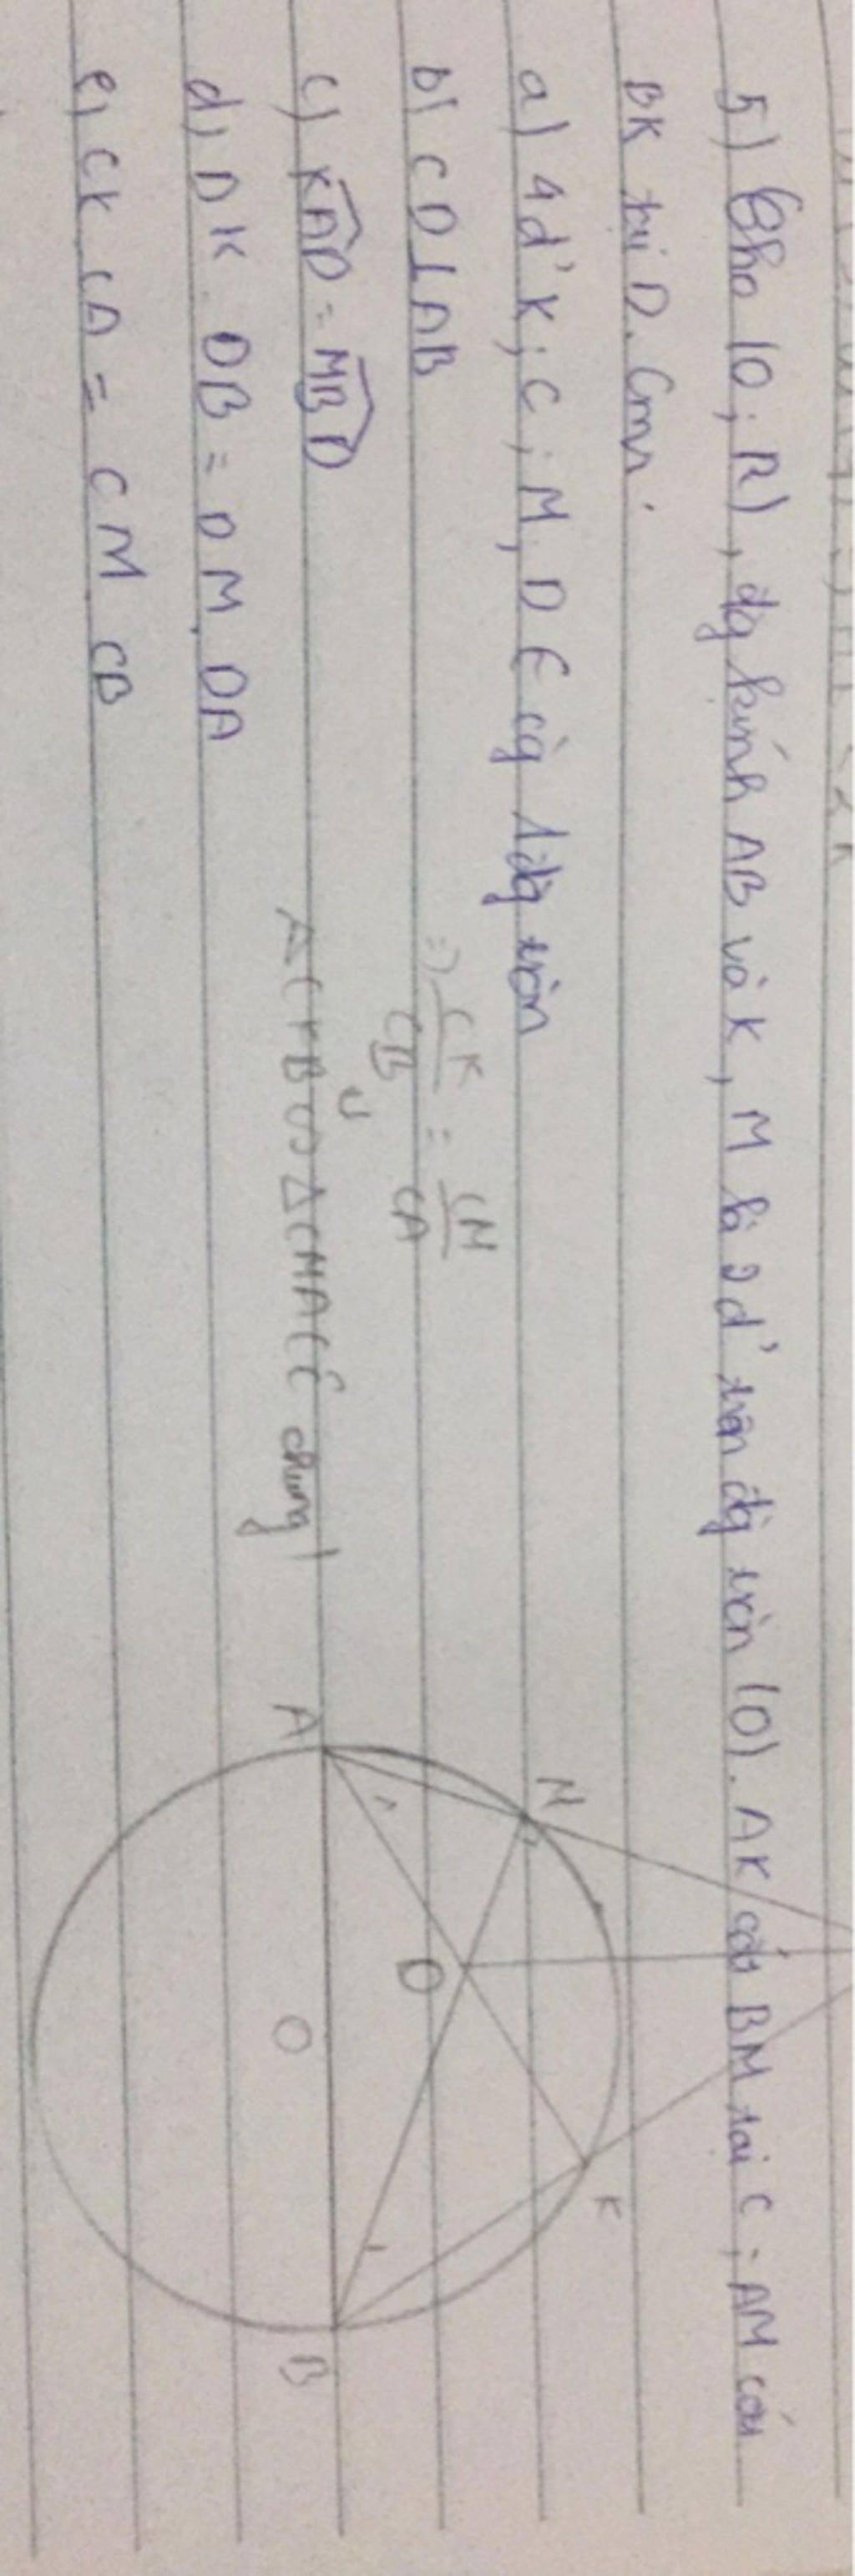 5) Cho (O; R), đg kính AB và K, M là 2 đ' trên đg tròn (O). AK cắt BM tại C; AM cắt
BK tại D. Cmr:
a) 4 đ' K; C; M, D ∈ cg 1 đg tròn
b) CD ⊥ AB
c) KAD = MBD
d) DK. DB = DM. DA
e) CK CA = CM CB
=> CK/CB = CM/CA
ΔCKB ∽ ΔCMA (C chung)
A
M
D
O
K
B